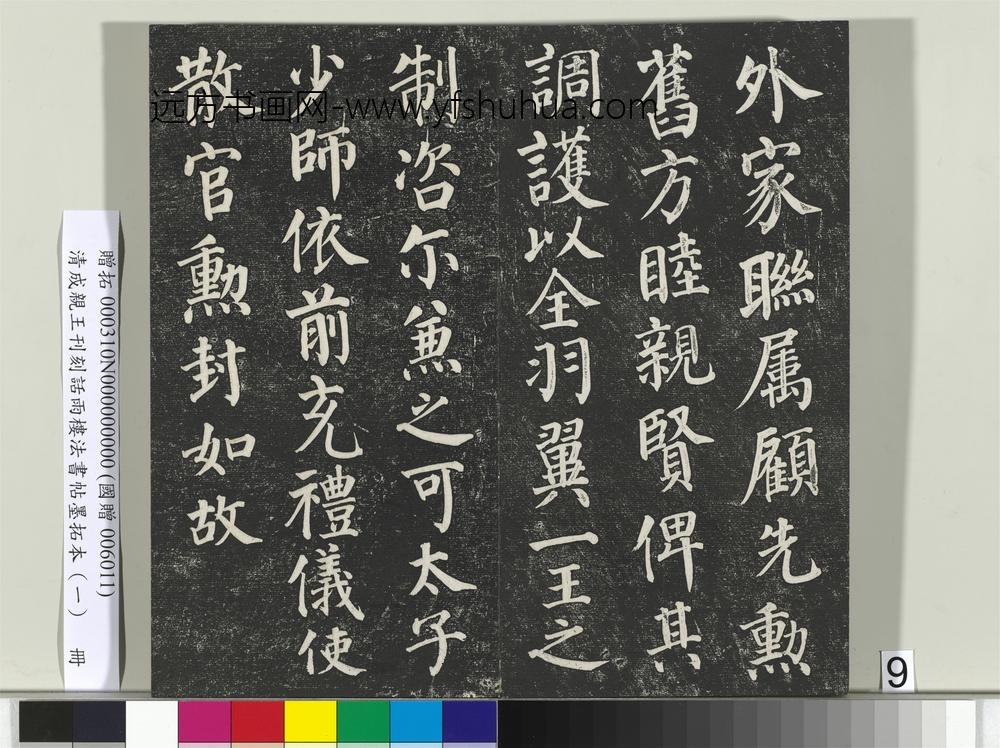 外家聯属顧先勲
舊方睦親賢俾其
調護以全羽翼一王之
制咨尓兼之可太子
少師依前充禮儀使
散官勲封如故
远方书画网-www.yfshuhua.com
贈拓 000310N000000000 (國贈 006011)
清成親王刊刻詒晉樓法書帖墨拓本（一） 冊
9